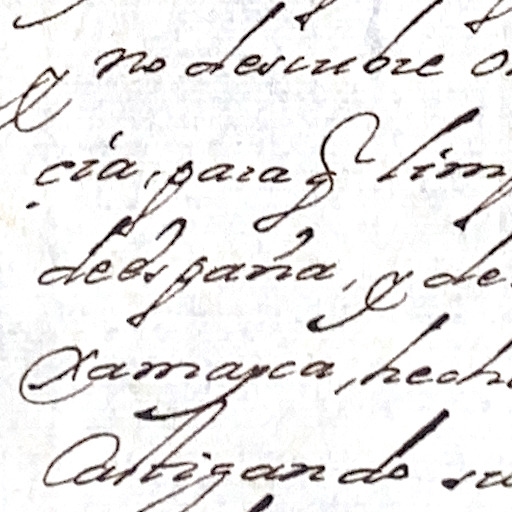 y no descubre
çía, para q̃ lim
de españa, y de
Caxamarca, hech
Castigando su